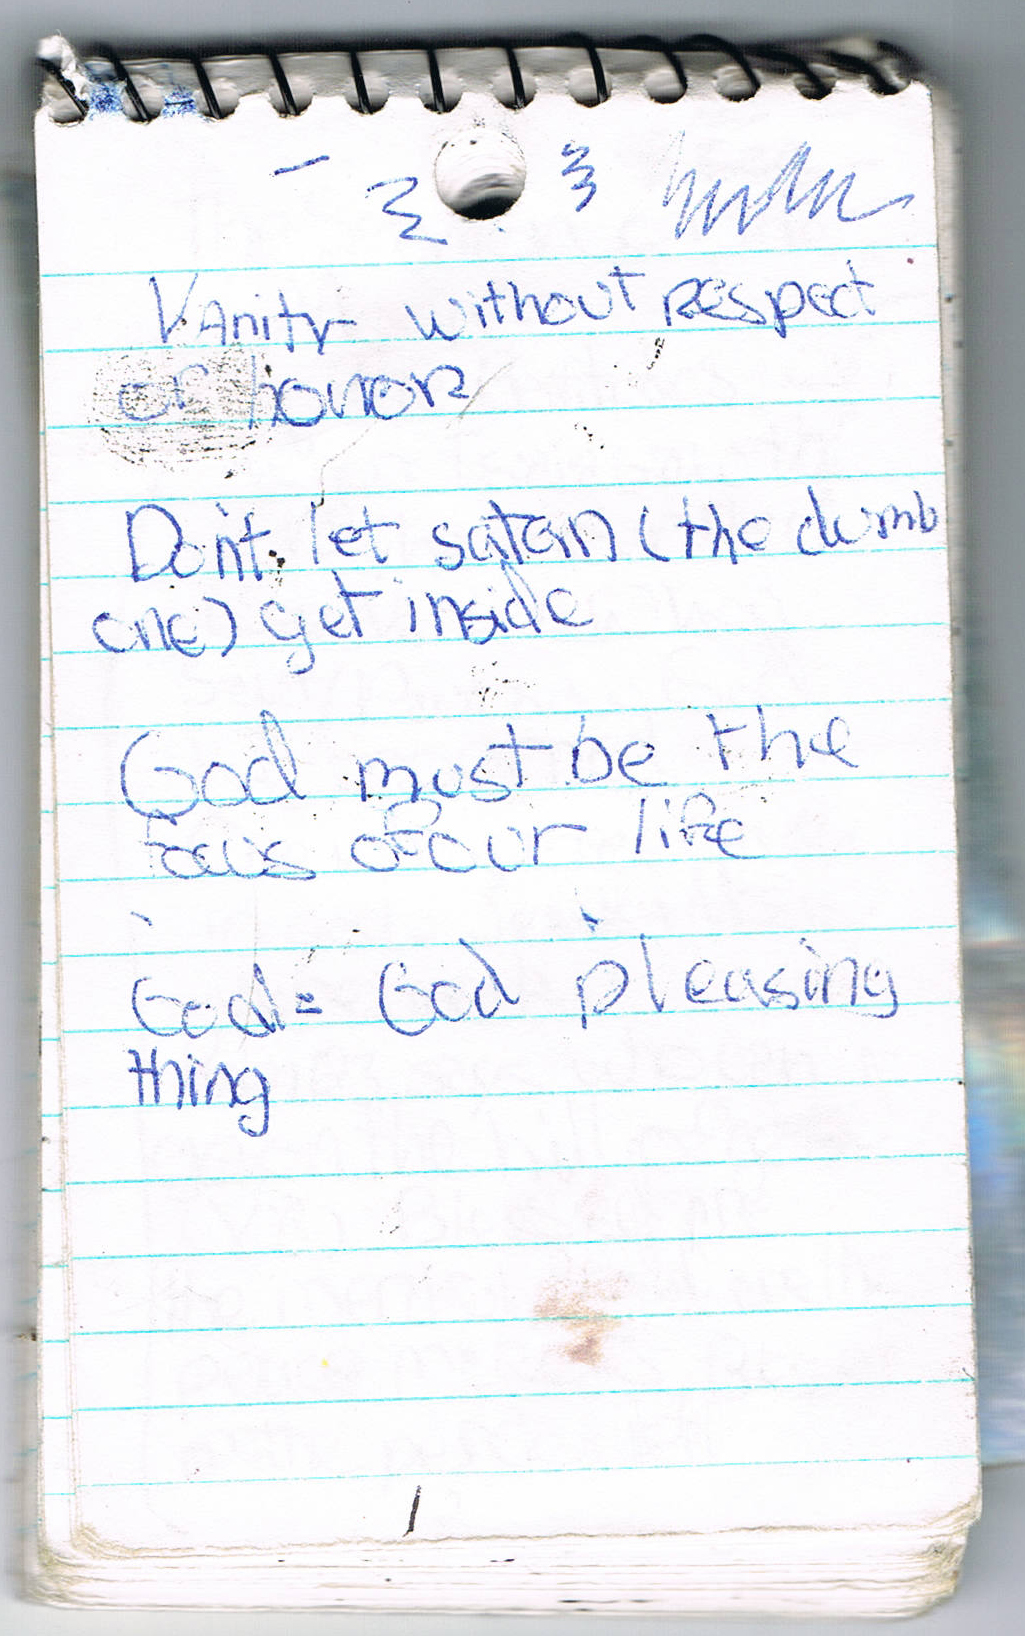 Vanity without respect
or honor
Don't let satan (the dumb
one) get inside
God must be the
focus of our life
God = God pleasing
thing